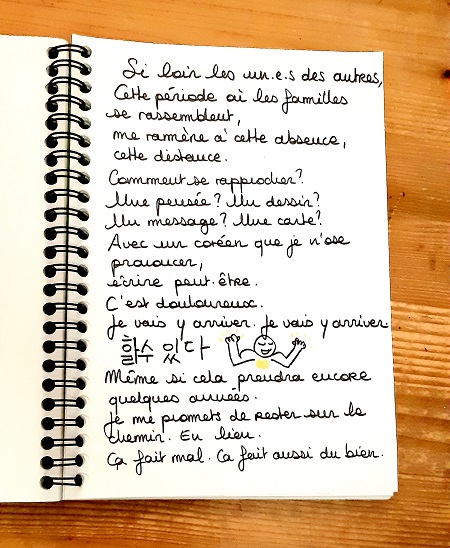 Si loin les un.e.s des autres,
Cette période où les familles
se rassemblent,
me ramène à cette absence,
cette distance.
Comment se rapprocher?
Une pensée? Un dessin?
Un message? Une carte?
Avec un coréen que je n'ose
prononcer,
écrire peut-être.
C'est douloureux.
Je vais y arriver. Je vais y arriver
할 수 있다
Même si cela prendra encore
quelques années.
Je me promets de rester sur le
chemin. En lien.
Ça fait mal. Ça fait aussi du bien.